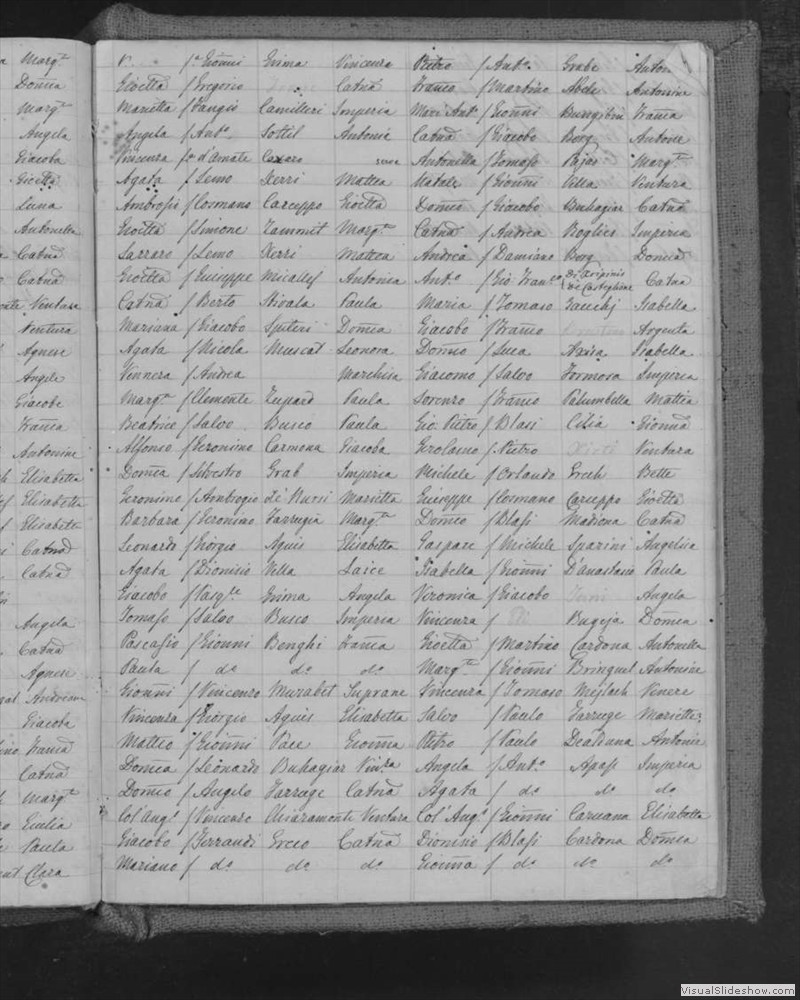 Marqta
Donna
Marqta
Angela
Giacoba
Gioetta
Luna
Antonella
Catna
Catna
Ventura
Ventura
Agnese
Angela
Giacoba
Franca
Antonina
Elisabetta
Elisabetta
Elisabetta
Catna
Catna
Angela
Catna
Agnese
Andreana
Giacoba
Franca
Catna
Marqta
Giulia
Paula
Clara
V. Gionni Grima Vincenza Pietro f Anto Grabe
Gioetta f Gregorio Catna Franco f Martino Abela Antonina
Marietta f Vangio Camilleri Imperia Mari Anta f Gionni Burgibin Franca
Angela f Anto Sottil Antonia Catna f Giacobo Borg Antonia
Vincenza d'Amate Antonella f Tomaso Pajar Marqta
Agata f Lemo Xerri Mattea Natale f Gionni Villa Ventura
Ambrosi f Cosmano Caruppo Gioetta Donna f Giacobo Buhagiar Catna
Gioetta f Simone Zammit Marqta Catna f Andrea Imperia
f Lemo Xerri Mattea Andrea f Damiano Borg Donna
Gioetta f Guiseppe Micallef Antonia Anto f Gio Franco De Castiglione Catna
Catna f Berto Nivala Paula Maria f Tomaso Isabella
Mariana f Giacobo Spiteri Donna Giacobo f Franco Argenta
Agata f Nicola Muscat Leonora Donno f Luca Axiva Isabella
Vennera f Andrea Marchisa Giacomo f Salvo Formosa Imperia
Marqta f Clemente Zupard Paula Lorenzo f Franco Palumbella Mattea
Beatrice f Salvo Busco Paula Gio Pietro f Blasi Cilia Gionna
Alfonso f Geronimo Carmona Giacoba Gerolamo f Pietro Ventura
Donna f Silvestro Grab Imperia Michele f Orlando Erceh Betta
Geronimo f Ambrogio Li Nursi Marietta Guiseppe f Cosmano Caruppo Gioetta
Barbara f Geronimo Farrugia Marqta Donno f Blasi Madiona Catna
Leonardo f Giorgio Agius Elisabetta Gaspare f Michele Sparini Angelica
Agata f Dionisio Villa Isabella f Gionni D'Anastasio Paula
Giacobo f Pasqle Grima Angela Veronica f Giacobo Angela
Tomaso f Salvo Busco Imperia Vincenza f Bugeja Donna
Pascasio f Gionni Benghi Franca Gioetta f Martino Cardona Antonella
Paula f do do do Marqta f Gionni Bringuel Antonina
Gionni f Vincenzo Murabet Suprane Vincenza f Tomaso Mejlach Venere
Vincenza f Giorgio Agius Elisabetta Salvo f Paulo Farruge Marietta
Matteo f Gionni Pace Gionna Pietro f Paulo Dealduna Antonia
Donna f Leonardo Buhagiar Vinza Angela f Anto Apap Imperia
Donno f Angelo Farruge Catna Agata f do do do
Col'Ango f Vincenzo Chiaramonte Ventura Col'Ango f Gionni Caruana Elisabetta
Giacobo f Ferrandi Erceo Catna Dionisio f Blasi Cardona Donna
Mariano f do do do Gionna f do do do
VisualSlideshow.com